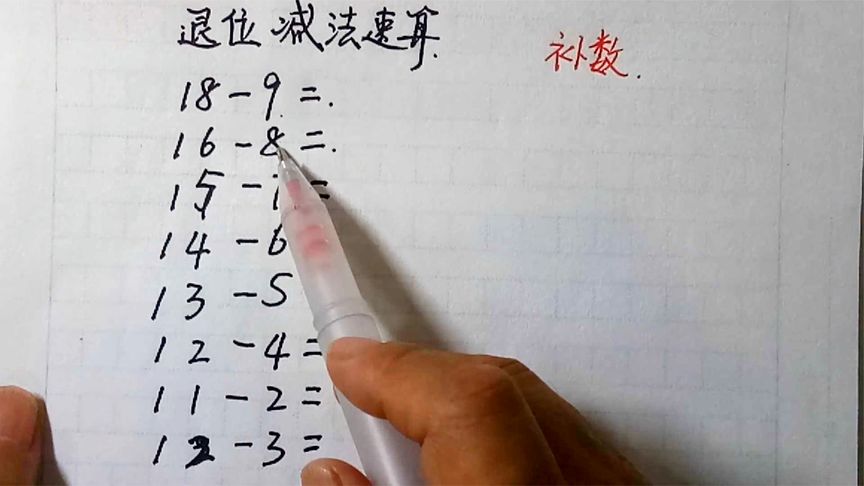 退位减法速算.
补数.
18-9=.
16-8=.
15-7=
14-6
13-5
12-4=
11-2=
12-3=